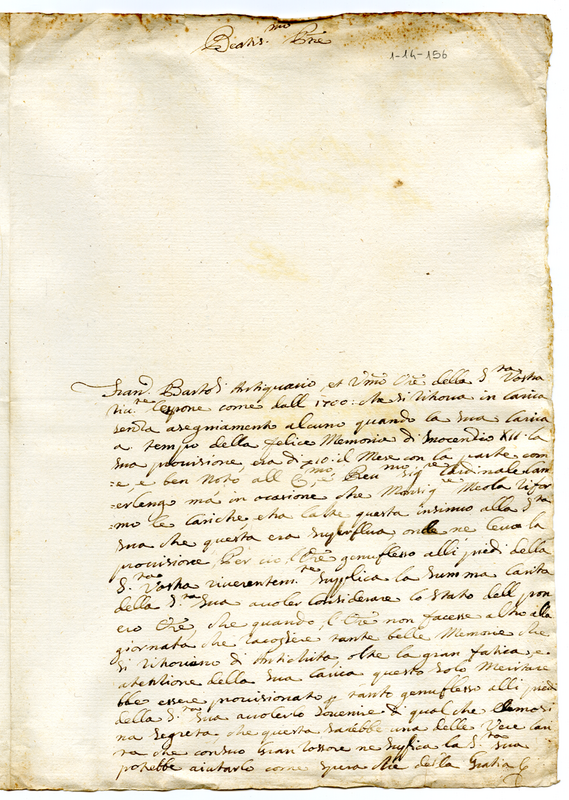 Beatis.mo Pre
1-14-156
Fran.co Bartoli Antiquario, et Umo Ore della S.tà Vostra
riv.te l'espone come dall 1700: che si ritrova in carica
senza asegniamento alcuno quando la sua carica
a tempo della felice Memoria di Inocenzio XII. la
sua provisione, era di 10: il Mese con la parte com
=e e ben noto all Em.mo e Rev.mo Sig.re Cardinale Cam
=erlengo mà in ocasione che Monsig.re Meola rifor
=mo le cariche, et ha la questa insinuo alla S.tà
sua che questa era superflua onde ne levo la
provisione, Per cio l'Ore genuflesso alli piedi della
S.tà Vostra riverentem.te Suplica la Summa carita
della S.tà Sua a voler considerare lo stato dell pov
ero Ore che quando l'Ore non facese altro alla
giornata che racogliere tante belle Memorie che
si ritrovano di Antichita, oltre la gran fatica, e
atentione della sua carica questo solo meritare
bbe essere provisionato p tanto genuflesso alli piedi
della S.tà Sua a volerlo sovenire di qual che elemosi
na segreta, che questa sarebbe una delle Vere cari
ta che con suo gran rossore ne suplica la S.tà Sua
potebbe aiutarlo come spera che della Gratia